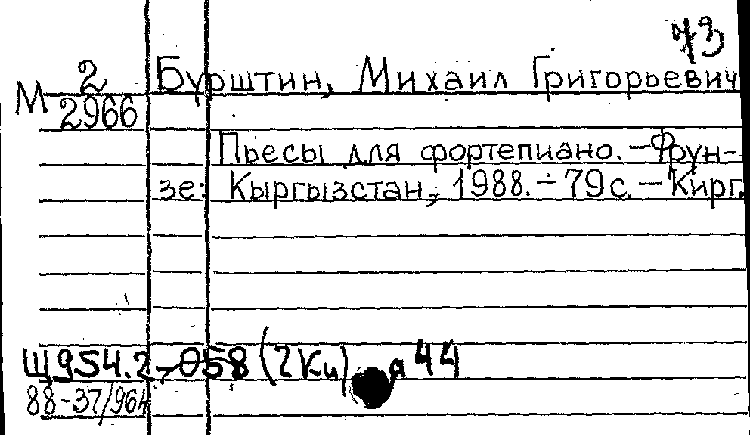 73
М 2/2966 Бурштин, Михаил Григорьевич
Пьесы для фортепиано. – Фрун-
зе: Кыргызстан, 1988. – 79 с. – Кирг.
Щ954.2-058(2Ки) я44
88-37/964